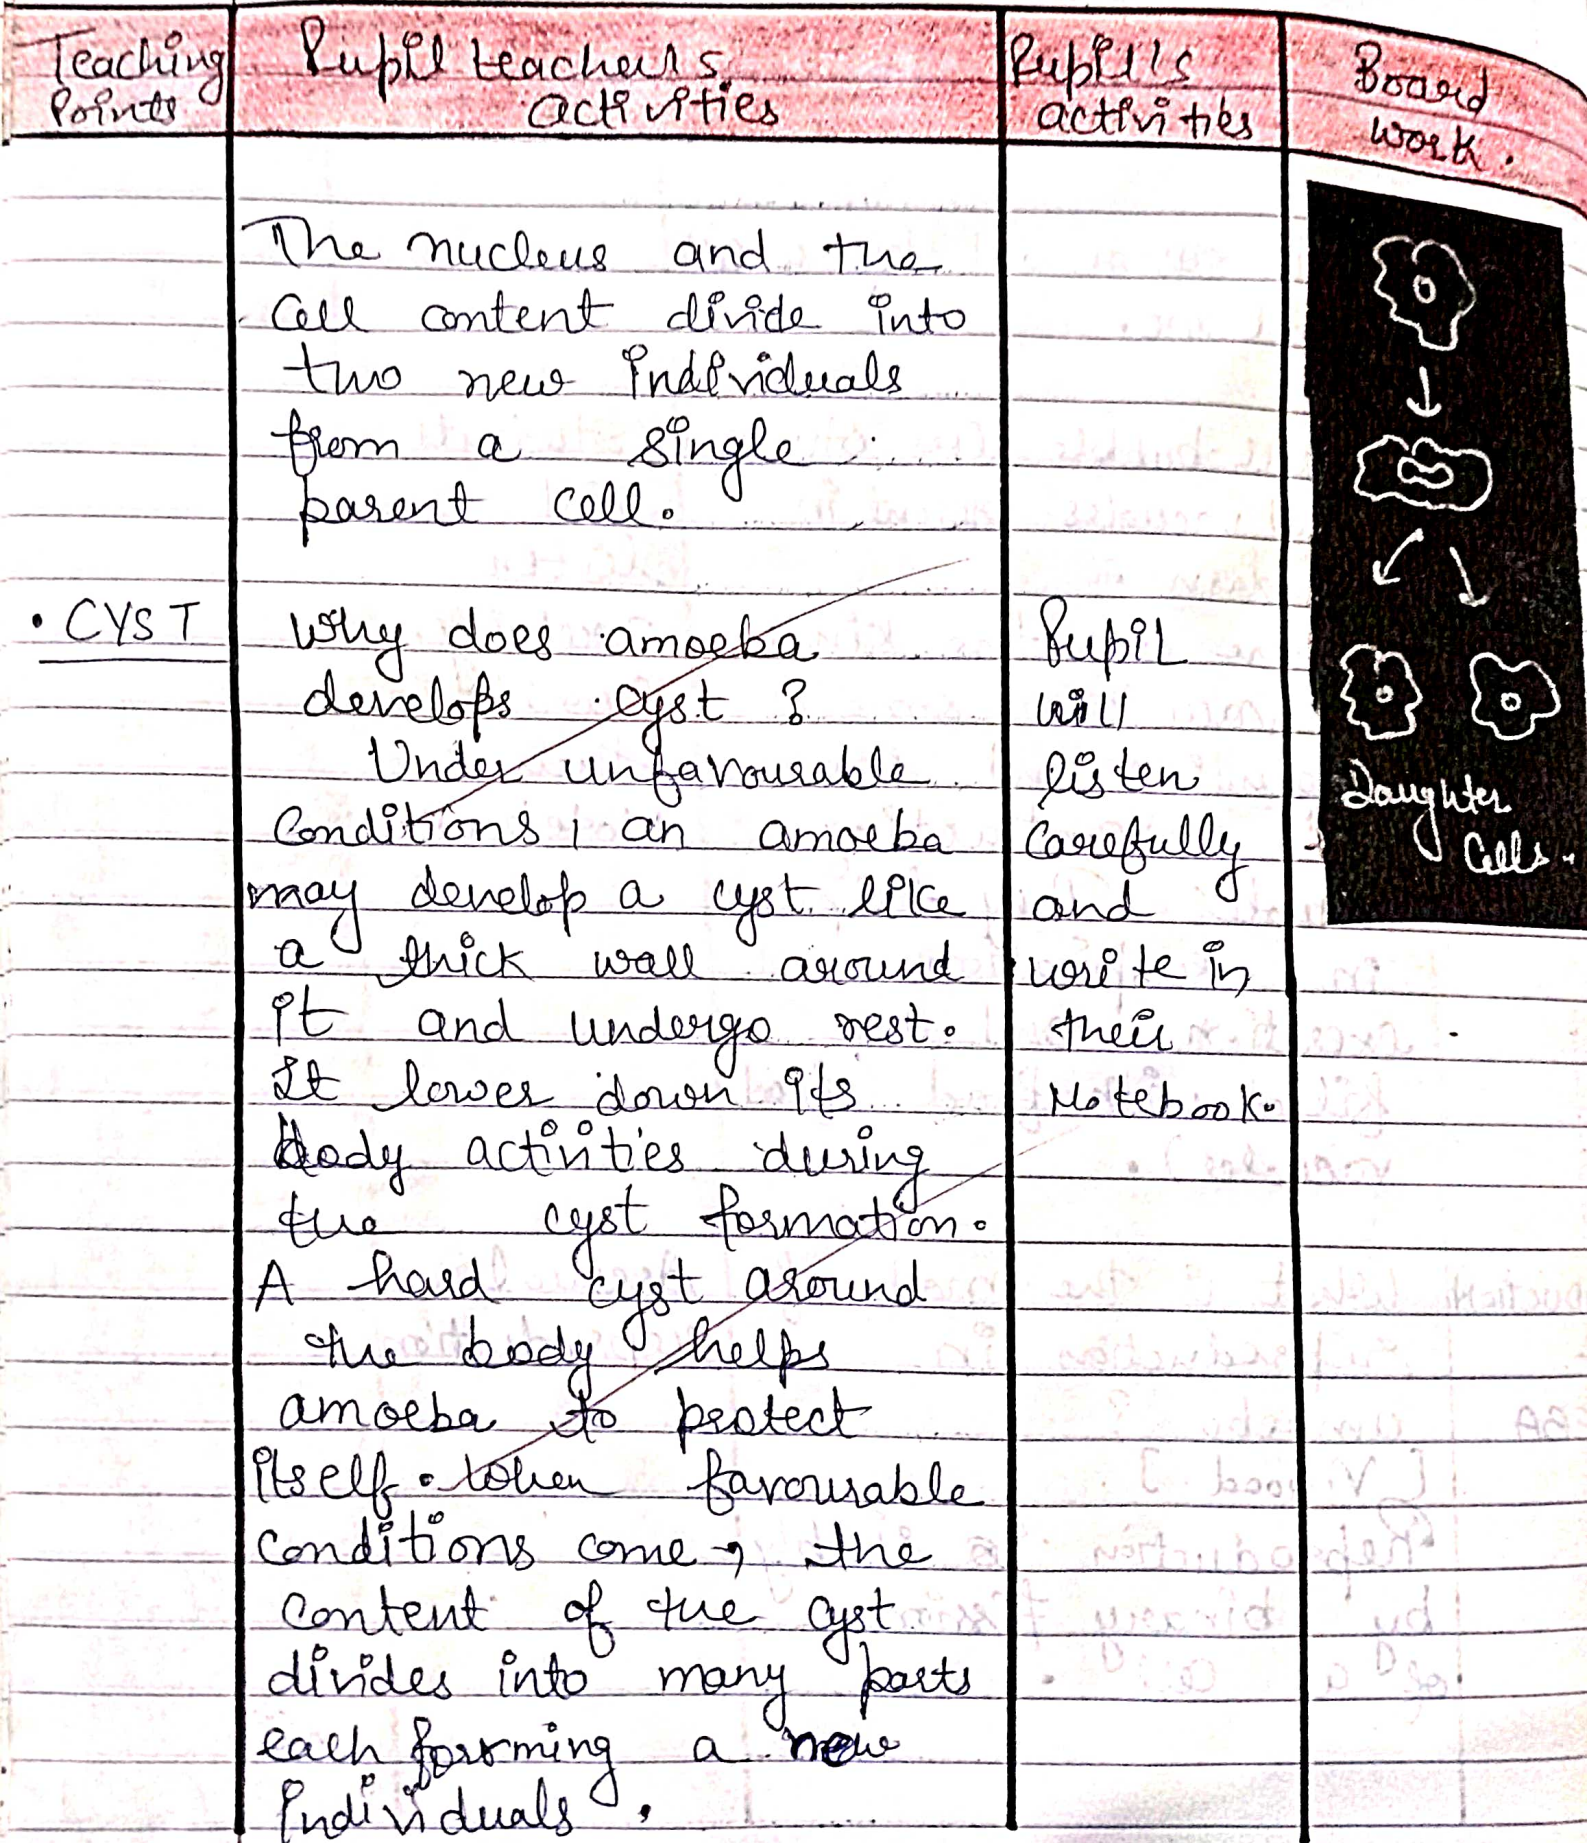 Teaching Points
Pupil teacher's activities
Pupil's activities
Board work.
The nucleus and the
Cell content divide into
two new individuals
from a single
parent cell.
• CYST
Why does amoeba
develops cyst ?
Under unfavourable
Conditions, an amoeba
may develop a cyst like
a thick wall around
it and undergo rest.
It lower down its
body activities during
the cyst formation.
A hard cyst around
the body helps
amoeba to protect
itself. When favourable
conditions come, the
content of the cyst
divides into many parts
each forming a new
individuals.
Pupil
will
listen
carefully
and
write in
their
Notebook.
Daughter
Cells.